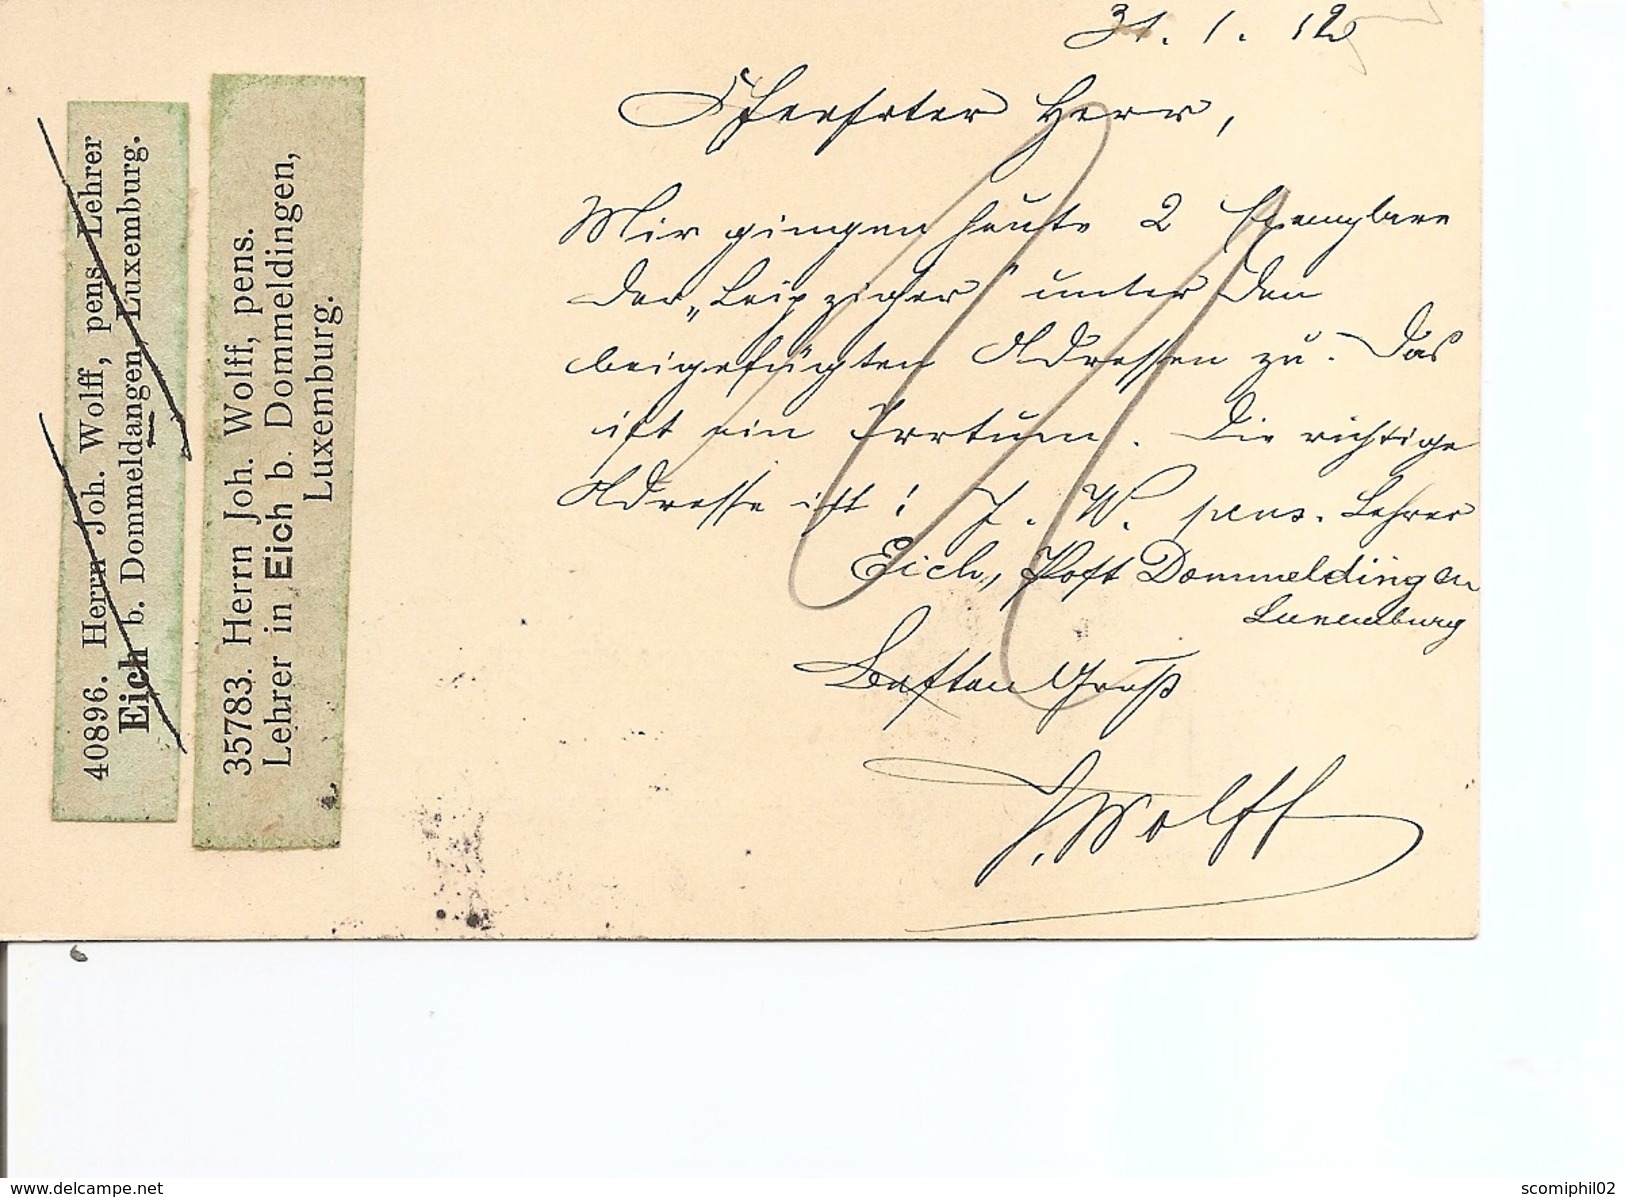 40896. Herrn Joh. Wolff, pens. Lehrer
Eich b. Dommeldangen, Luxemburg.
35783. Herrn Joh. Wolff, pens.
Lehrer in Eich b. Dommeldingen,
Luxemburg.
31. 1. 12
Geehrter Herr,
Mir gingen heute 2 Exemplare
der „Leipziger" unter den
beigefügten Adressen zu. Das
ist ein Irrtum. Die richtige
Adresse ist: J. W. pens. Lehrer
Eich, Post Dommeldingen
Luxemburg
Besten Gruß
J. Wolff
www.delcampe.net
scomiphil02